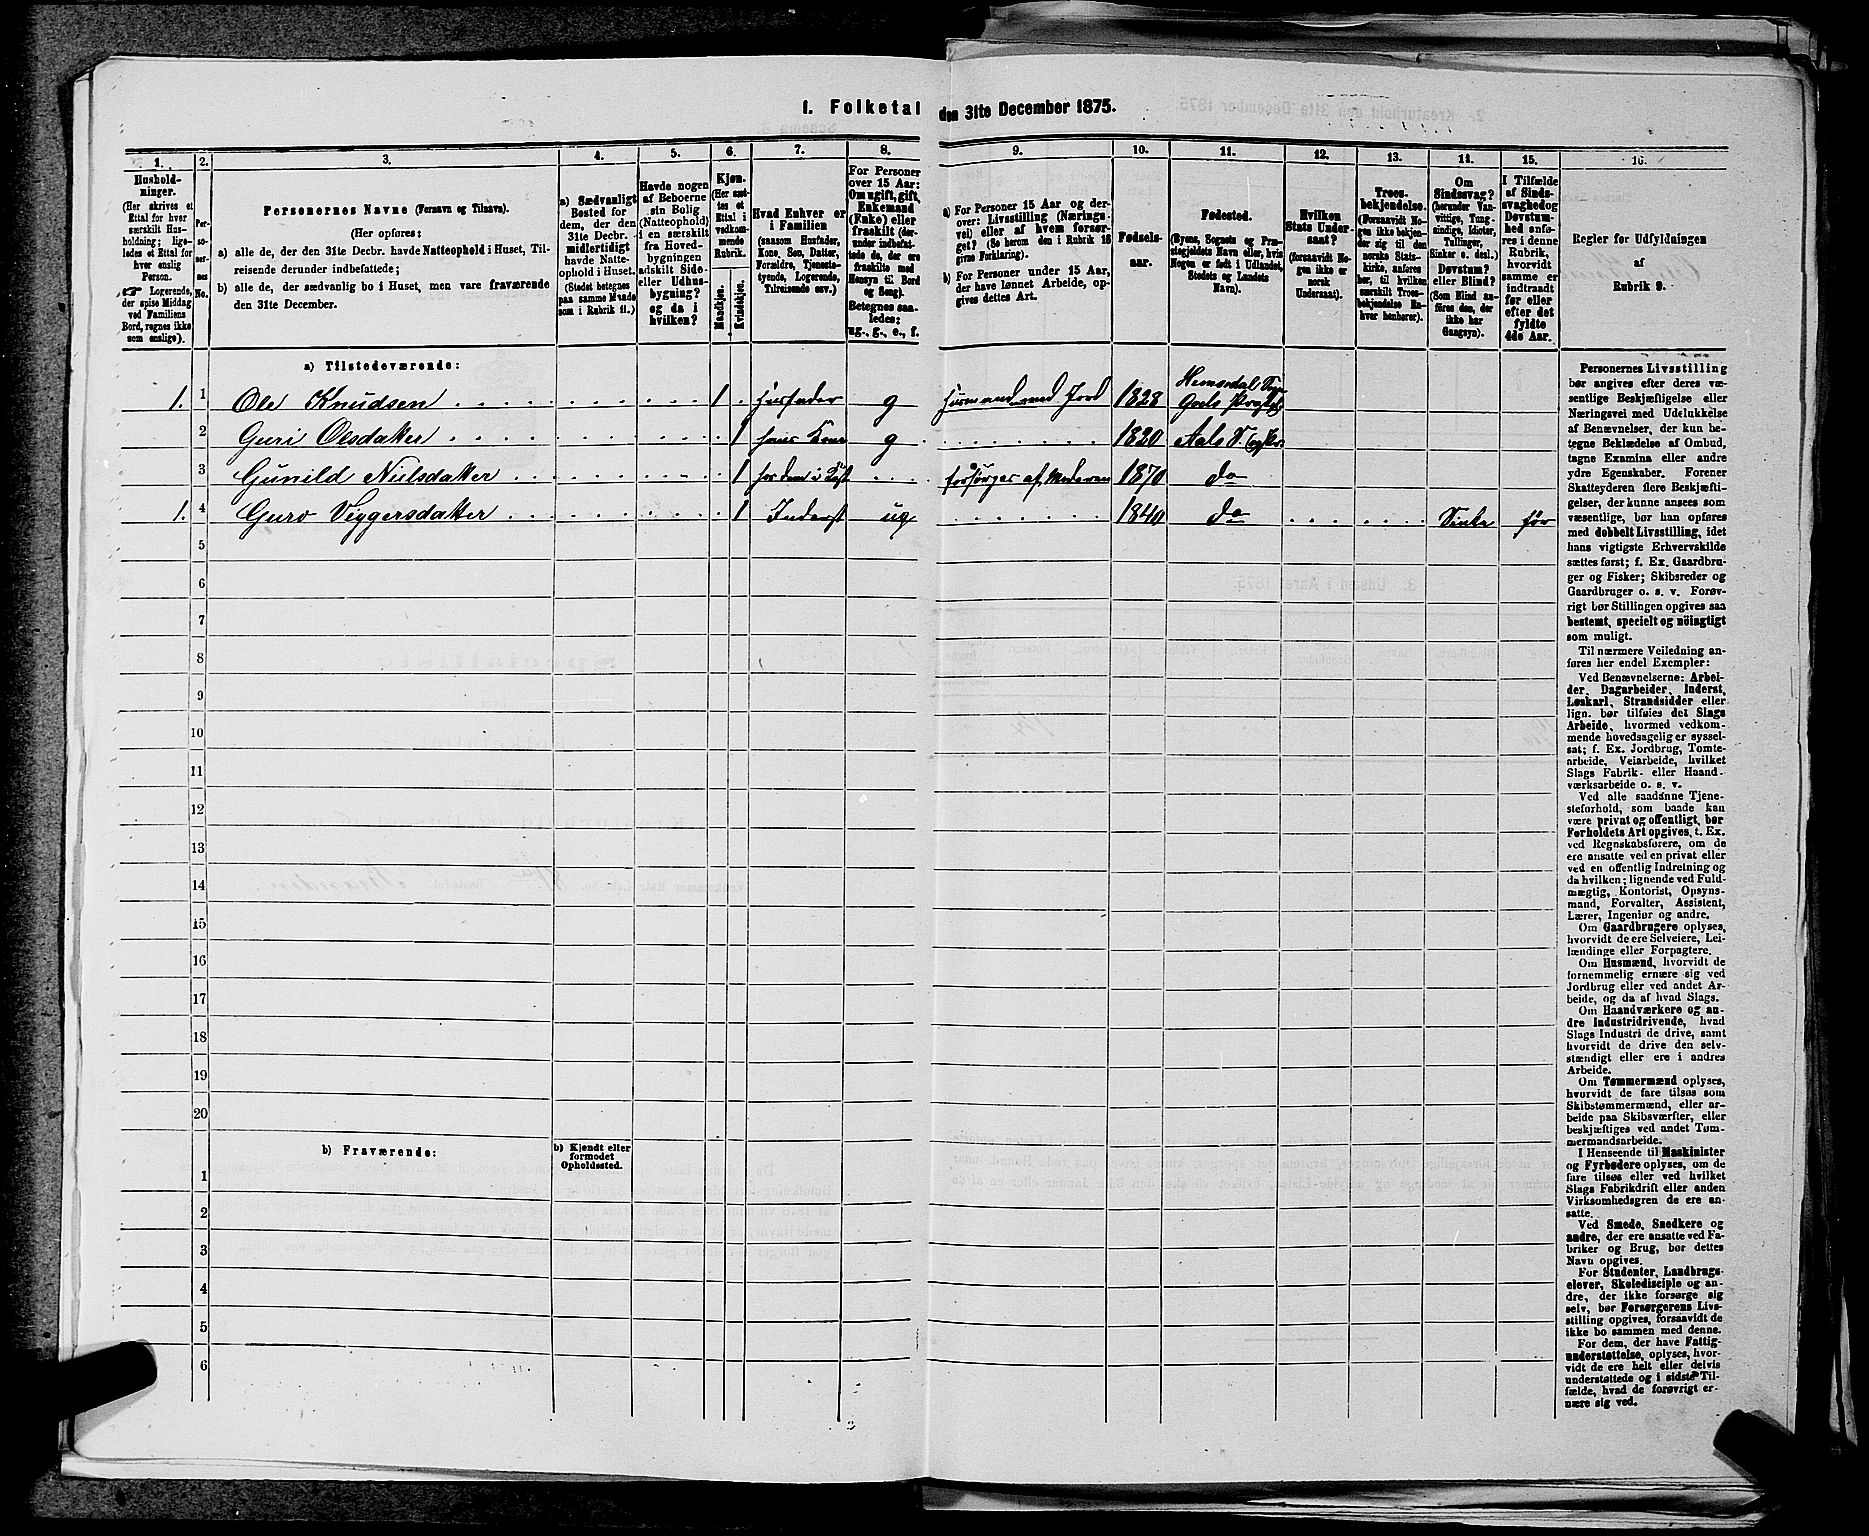 1. Folketal den 31te December 1875.
1. 2. 3. 4. 5. 6. 7. 8. 9. 10. 11. 12. 13. 14. 15. 16.
Hushold-
ninger.
(Her skrives et
Ettal for hver
særskilt Hus-
holdning; lige-
ledes et Ettal for
hver enslig
Person.
☞ Logerende,
der spise Middag
ved Familiens
Bord, regnes ikke
som enslige).
Per-
soner-
nes
No.
Personernes Navne (Fornavn og Tilnavn).
(Her opføres:
a) alle de, der den 31te Decbr. havde Natteophold i Huset, Til-
reisende derunder indbefattede;
b) alle de, der sædvanlig bo i Huset, men vare fraværende
den 31te December.
a) Sædvanligt
Bosted for
dem, der den
31te Decbr.
midlertidigt
havde Natte-
ophold i Huset.
(Stedet betegnes
paa samme Maade
som i Rubrik 11.)
Havde nogen
af Beboerne
sin Bolig
(Natteophold)
i en særskilt
fra Hoved-
bygningen
adskilt Side-
eller Udhus-
bygning?
og da i
hvilken?
Kjøn.
(Her sæt-
tes et
Ettal i
vedkom-
mende
Rubrik.
Mandkjøn.
Kvindekjøn.
Hvad Enhver er
i Familien
(saasom Husfader,
Kone, Søn, Datter,
Forældre, Tjeneste-
tyende, Logerende,
Tilreisende osv.)
For Personer
over 15 Aar:
Om ugift, gift,
Enkemand
(Enke) eller
fraskilt (der-
under indbefat-
tede de, der ere
fraskilte med
Hensyn til Bord
og Seng).
Betegnes saa-
ledes:
ug., g., e., f.
a) For Personer 15 Aar og der-
over: Livsstilling (Nærings-
vei) eller af hvem forsør-
get? (Se herom den i Rubrik 16
givne Forklaring).
b) For Personer under 15 Aar,
der have lønnet Arbeide, op-
gives dettes Art.
Fødsels-
aar.
Fødested.
(Byens, Sognets og Præ-
stegjeldets Navn eller, hvis
Nogen er født i Udlandet,
Stedets og Landets
Navn).
Hvilken
Stats Under-
saat?
(forsaavidt No-
gen ikke er
norsk
Undersaat).
Troes-
bekjendelse.
(Forsaavidt No-
gen ikke bekjen-
der sig til den
norske Stats-
kirke, anføres
her, til hvilken
særskilt Troes-
bekjendelse En-
hver henhører).
Om
Sindssvag?
(herunder Van-
vittige, Tung-
sindige, Idioter,
Tullinger,
Sinker o. desl.)
Døvstum?
eller Blind?
(Som Blind an-
føres den, der
ikke har
Gangsyn).
I Tilfælde
af Sinds-
svaghed og
Døvstum-
hed anfø-
res i denne
Rubrik,
hvorvidt
samme er
indtraadt
før eller
efter det
fyldte
4de Aar.
Regler for Udfyldningen
af
Rubrik 9.
a) Tilstedeværende:
1. 1 Ole Knudsen 1 Husfader g Husmand med Jord 1828 Hemsedal Sogn
Goels
2 Guri Olsdatter 1 hans Kone g 1820 Aals S. og Pr.
3 Gunild Nielsdatter 1 hos dem i Kost forsørges af Moderen 1870 do
1. 4 Guro Viggersdatter 1 Inderst ug 1840 do Sinke før
5
6
7
8
9
10
11
12
13
14
15
16
17
18
19
20
b) Fraværende:
b) Kjendt eller
formodet
Opholdssted.
1
2
3
4
5
6
Personernes Livsstilling
bør angives efter deres væ-
sentlige Beskjæftigelse eller
Næringsvei med Udelukkelse
af Benævnelser, der kun be-
tegne Beklædelse af Ombud,
tagne Examina eller andre
ydre Egenskaber. Forener
Skatteyderen flere Beskjæfti-
gelser, der kunne ansees som
væsentlige, bør han opføres
med dobbelt Livsstilling, idet
hans vigtigste Erhvervskilde
sættes først; f. Ex. Gaardbru-
ger og Fisker; Skibsreder og
Gaardbruger o. s. v. Forøv-
rigt bør Stillingen opgives saa
bestemt, specielt og nöiagtigt
som muligt.
Til nærmere Veiledning an-
føres her endel Exempler:
Ved Benævnelserne: Arbei-
der, Dagarbeider, Inderst,
Løskarl, Strandsidder eller
lign. bør tilføies det Slags
Arbeide, hvormed vedkom-
mende hovedsagelig er syssel-
sat; f. Ex. Jordbrug, Tomte-
arbeide, Veiarbeide, hvilket
Slags Fabrik- eller Haand-
værksarbeide o. s. v.
Ved alle saadanne Tjene-
steforhold, som baade kan
være privat og offentligt, bør
Forholdets Art opgives, t. Ex.
ved Regnskabsførere, om de
ere ansatte ved en privat eller
ved en offentlig Indretning og
da hvilken; lignende ved Fuld-
mægtig, Kontorist, Opsyns-
mand, Forvalter, Assistent,
Lærer, Ingeniør og andre.
Om Gaardbrugere oplyses,
hvorvidt de ere Selveiere, Lei-
lændinge eller Forpagtere.
Om Husmænd, hvorvidt de
fornemmelig ernære sig ved
Jordbrug eller ved andet Ar-
beide, og da af hvad Slags.
Om Haandværkere og an-
dre Industridrivende, hvad
Slags Industri de drive, samt
hvorvidt de drive den selv-
stændigt eller ere i andres
Arbeide.
Om Tømmermænd oplyses,
hvorvidt de fare tilsøs som
Skibstømmermænd, eller ar-
beide paa Skibsværfter, eller
beskjæftiges ved andet Tøm-
mermandsarbeide.
I Henseende til Maskinister
og Fyrbødere oplyses, om de
fare tilsøs eller ved hvilket
Slags Fabrikdrift eller anden
Virksomhedsgren de ere an-
satte.
Ved Smede, Snedkere og
andre, der ere ansatte ved Fa-
briker og Brug, bør dettes
Navn opgives.
For Studenter, Landbrugs-
elever, Skoledisciple og an-
dre, der ikke forsørge sig
selv, bør Forsørgerens Livs-
stilling opgives, forsaavidt de
ikke bo sammen med denne.
For dem, der have Fattig-
understøttelse, oplyses, hvor-
vidt de ere helt eller delvis
understøttede og i sidste Til-
fælde, hvad de forøvrigt er-
nære sig ved.